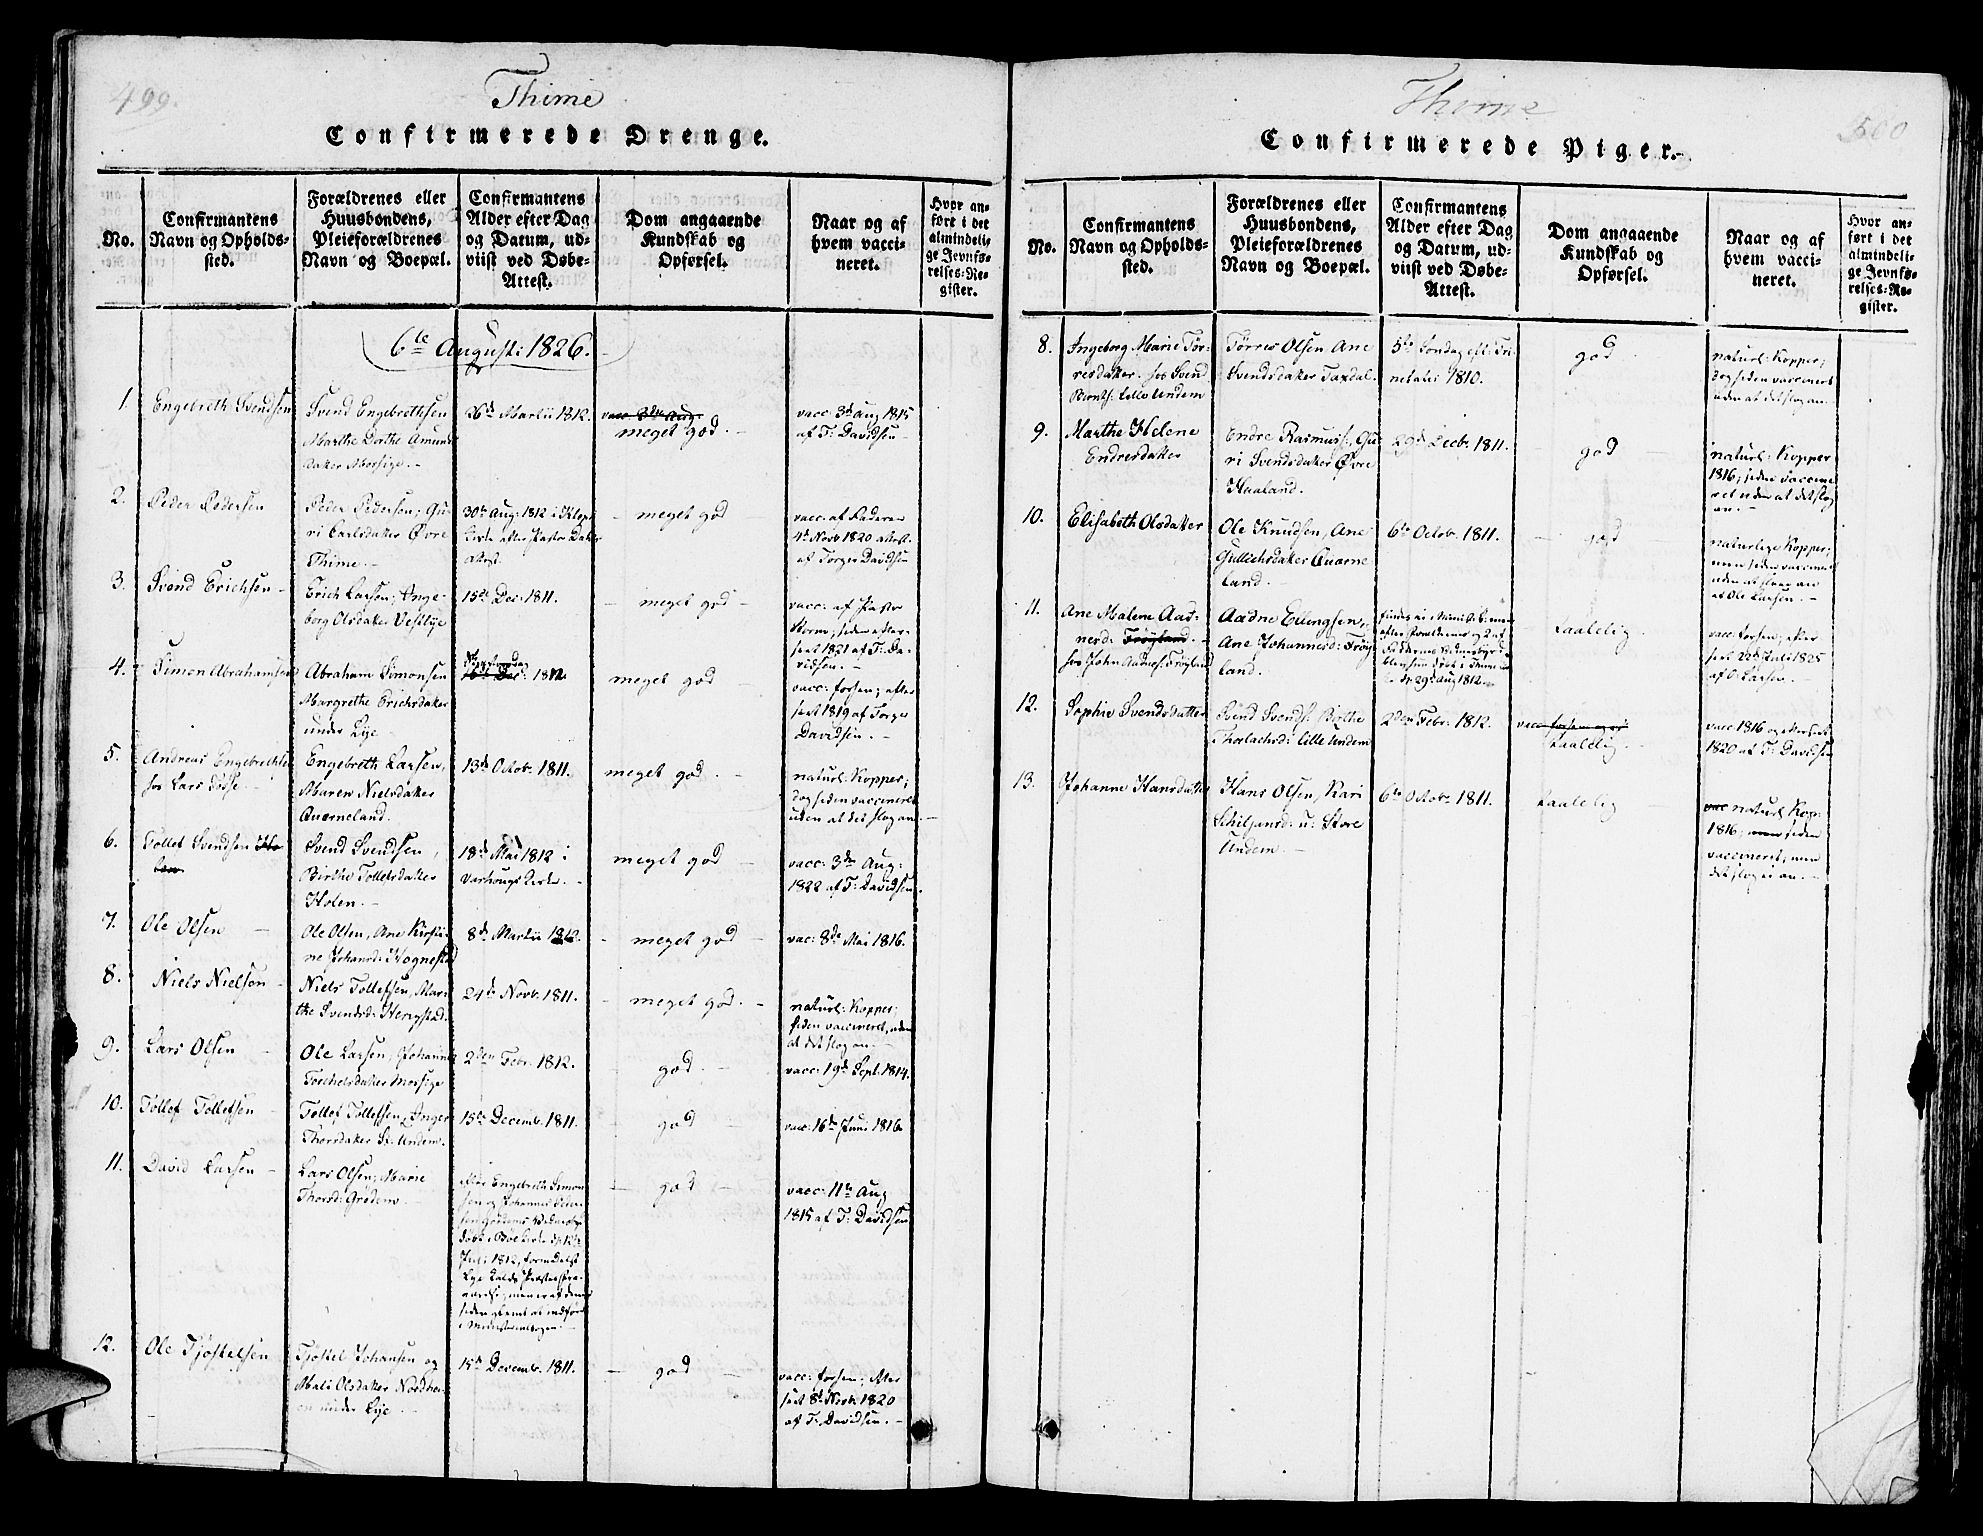 499.
Thime
Confirmerede Drenge.
No.
Confirmantens
Navn og Opholds-
sted.
Forældrenes eller
Huusbondens,
Pleieforældrenes
Navn og Boepæl.
Confirmantens
Alder efter Dag
og Datum, ud-
viist ved Døbe-
Attest.
Dom angaaende
Kundskab og
Opførsel.
Naar og af
hvem vacci-
neret.
Hvor an-
ført i det
almindeli-
ge Jevnfø-
relses-Re-
gister.
6te August 1826.
1.
Engebreth Svendsen
Svend Engebrethsen
Marthe Dorthe Amunds
dater Morsige.
26de Martii 1812.
vacc. 3de Aug:
meget god. -
vacc: 3de Aug 1815
af T: Davidsen
2.
Peder Pedersen
Peder Pedersen; Gu-
ri Carlsdater Øvre
Thime. -
30te Aug: 1812 i Klep
Kirke efter Pastor
Attest
- meget god
vacc: af Faderen
4de Novb 1820 attest.
af Torger Davidsen
3.
Svend Erichsen -
Erich Larsen; Inge-
borg Olsdater Vestlye
15de Dec: 1811.
- meget god -
vacc: af Pastor
Storm; siden efter-
seet 1821 af T: Da-
vidsen. -
4.
Simon Abrahamsen
Abraham Simonsen
Margrethe Erichsdater
under Lye. -
1812
meget god -
vacc: forsen; efter
seet 1819 af Torger
Davidsen. -
5.
Andreas Engebrethsen
hos Lars Fosse. -
Engebreth Larsen,
Maren Nielsdater
Qverneland.
13de Octob. 1811.
meget god. -
naturl: Kopper;
dog siden vaccineret
uden at det slog an. -
6.
Tollef Svendsen Ho-
len
Svend Svendsen,
Birthe Tollefsdater
Holen. -
18de Mai 1812 i
Varhougs Kirke. -
meget god -
vacc: 3de Aug:
1822 af T: Davidsen.
7.
Ole Olsen -
Ole Olsen, Ane Kirsti-
ne Johansd: Hognestad
8de Martii 1812.
- meget god -
vac: 8de Mai 1816.
8.
Niels Nielsen -
Niels Tollefsen, Mar-
the Svendsd: Herigstad.
24de Novb. 1811.
- meget god. -
naturl: Kopper;
siden vaccineret, uden
at det slog an. -
9.
Lars Olsen -
Ole Larsen; Johanne
Torchelsdater Morsige
2den Febr. 1812.
- god. -
vacc: 19de Sept. 1814.
10.
Tollef Tollefsen -
Tollef Tollefsen, Inger
Thorsdater St: Undem.
15de Decemb. 1811.
- god -
vacc: 16de Juni 1816.
11.
David Larsen -
Lars Olsen; Marie
Thorsd: Grødem
Engebreth Simon-
sen og Johannes
sen Grødems Vidnesbyrd
døbt i Bøe Kirke d: 12te
Juli 1812,
siden glemt at indføre
i Ministerialbogen. -
- god -
vacc: 11te Aug
1815 af T: Davidsen
12.
Ole Tjøstelsen
Tjøstel Johansen og
Mali Olsdater Nordhei-
en under Lye. -
15de Decemb. 1811.
- god -
vacc: forsen; efter
seet 8de Novb 1820
af T: Davidsen. -
Thime
500
Confirmerede Piger.
No.
Confirmantens
Navn og Opholds-
sted.
Forældrenes eller
Huusbondens,
Pleieforældrenes
Navn og Boepæl.
Confirmantens
Alder efter Dag
og Datum, ud-
viist ved Døbe-
Attest.
Dom angaaende
Kundskab og
Opførsel.
Naar og af
hvem vacci-
neret.
Hvor an-
ført i det
almindeli-
ge Jevnfø-
relses-Re-
gister.
8.
Ingeborg Marie Tør-
resdater. hos Svend
Bernts: Lille Undem
Tørres Olsen Ane
Svendsdater Taxdal.
5te Søndag eft: Tri-
nitatis 1810.
god
naturl: Kopper;
dog siden vaccineret
uden at det slog an. -
9.
Marthe Helene
Endresdater
Endre Rasmuss:, Gu-
ri Svendsdater Øvre
Haaland. -
29de Decb. 1811.
god -
naturl: Kopper
1816; siden vaccine
ret uden at det slog
an. -
10.
Elisabeth Olsdater
Ole Knudsen, Ane
Gullichsdater Qverne
land. -
6te Octob. 1811.
- god -
naturlige Kopper;
men siden vaccineret
uden at slaae an
af Ole Larsen. -
11.
Ane Malene Aad-
nesd: Frøyland. -
hos John Aadnes: Frøyland
Aadne Ellingsen,
Ane Johannesd: Frøy
land.
findes ei i Minist: B: men
efter Forældrenes og 2 af
Faddernes Vidnesbyrd
døbt i Thime
d. 29de Aug 1812. -
- taalelig. -
vacc: forsen; efter
seet 22de Juli 1825
af O: Larsen. -
12.
Sophie Svendsdatter
Svend Svends: Birthe
Thorlachsd: Lille Undem
2den Febr. 1812.
vacc forsen og ei
taalelig. -
vacc 1816 og efterseet
1820 af T: Davidsen
13.
Johanne Hansdatter
Hans Olsen, Kari
Schiljansd: u: Store
Undem. -
6te Octob. 1811.
taalelig -
vac naturl: Kop:
1816; men siden
vaccineret, men
det slog ei an. -